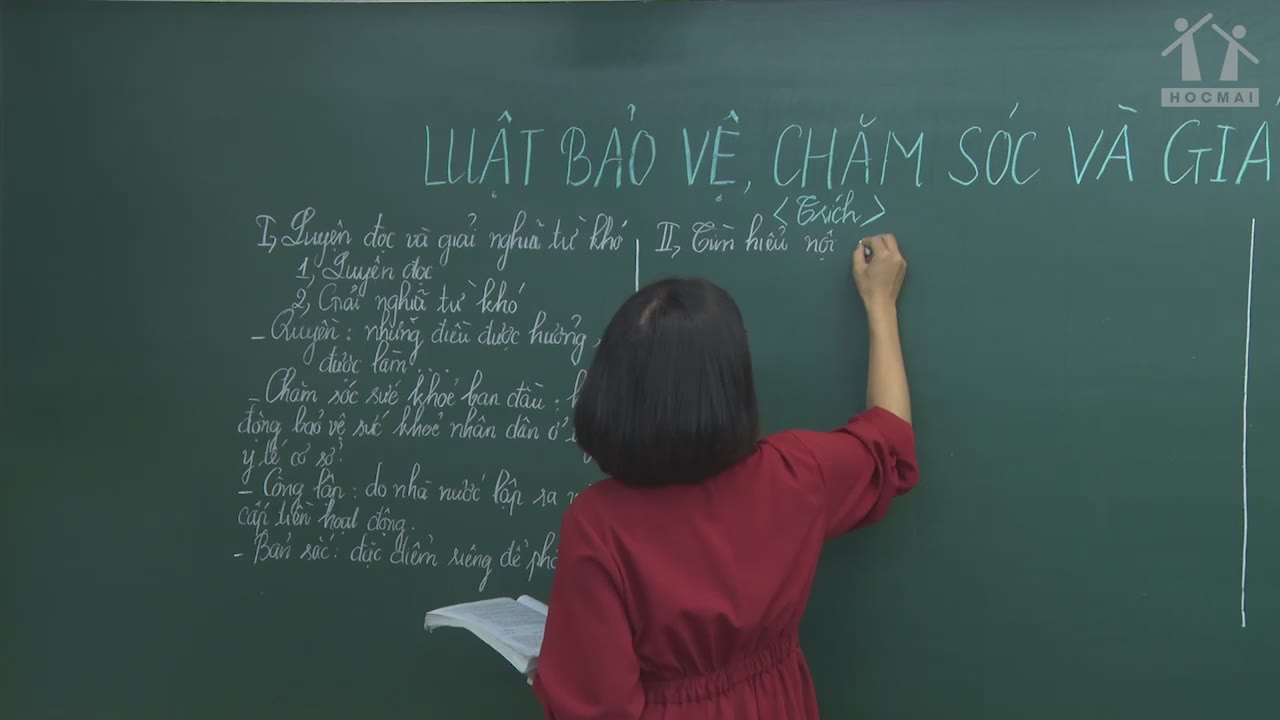 HOCMAI
LUẬT BẢO VỆ, CHĂM SÓC VÀ GIÁ
<Trích>
I, Luyện đọc và giải nghĩa từ khó
1, Luyện đọc
2, Giải nghĩa từ khó
- Quyền: những điều được hưởng,
được làm.
- Chăm sóc sức khoẻ ban đầu:
động bảo vệ sức khoẻ nhân dân ở
y tế cơ sở.
- Công lập: do nhà nước lập ra
cấp tiền hoạt động.
- Bản sắc: đặc điểm riêng để
II, Tìm hiểu nội